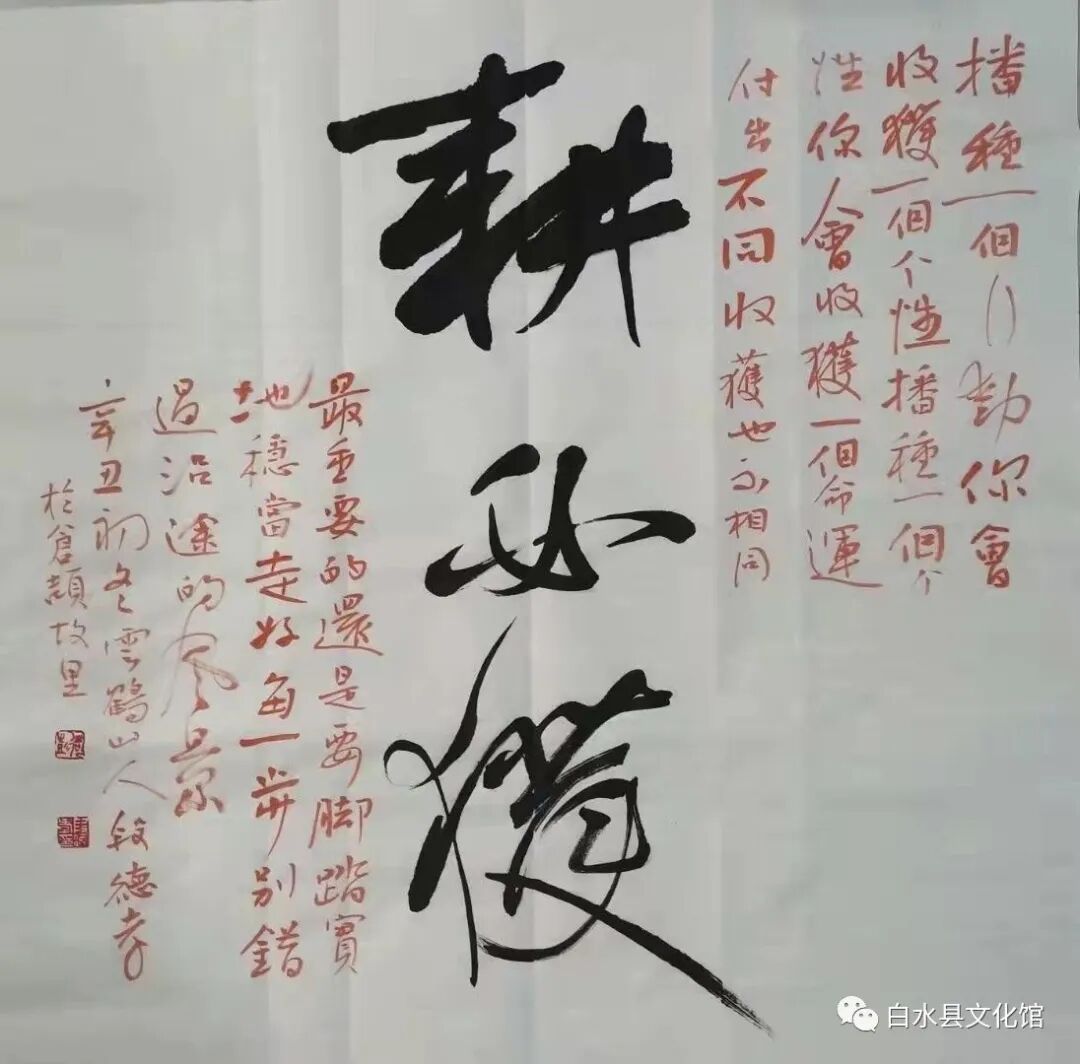 播種一個行動你會
收獲一個个性播種一個个
性你會收獲一個命運
付出不同收獲也不相同
耕必獲
最重要的還是要脚踏實
地穩當走好每一步别錯
過沿途的风景
辛丑初冬雲鶴山人段德孝
於倉頡故里
白水县文化馆